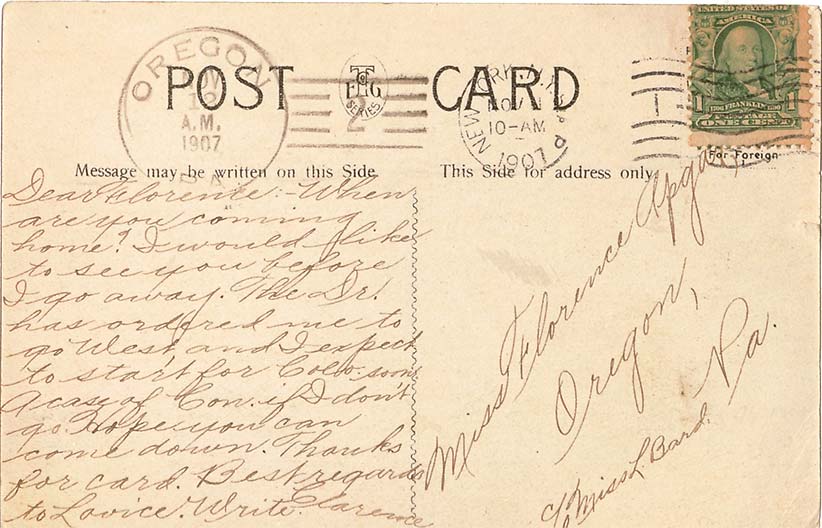 OREGON
A.M.
1907
PA.
POST CARD
T.
F.H.G
SERIES
2
NEW YORK, N.Y.
NOV
10-AM
1907
UNITED STATES OF
AMERICA
1
1
1706 FRANKLIN 1790
POSTAGE
ONE CENT
1
For Foreign
Message may be written on this Side.
This Side for address only.
Dear Florence:-When
are you coming
home? I would like
to see you before
I go away. The Dr.
has ordered me to
go West, and I expect
to start for Colo. soon.
A case of Con. if I don't
go. Hope you can
come down. Thanks
for card. Best regards
to Lovice. Write. Clarence
Miss Florence Apgar
Oregon,
Pa.
c/o Miss L. Bard.